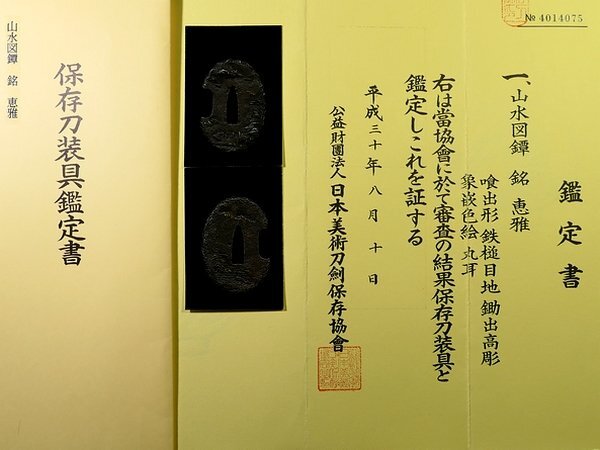 № 4014075
鑑定書
一、山水図鐔 銘 恵雅
喰出形 鉄槌目地 鋤出高彫
象嵌色絵 丸耳
右は當協會に於て審査の結果保存刀装具と
鑑定しこれを証する
平成三十年八月十日
公益財團法人日本美術刀剣保存協會
保存刀装具鑑定書
山水図鐔 銘 恵雅